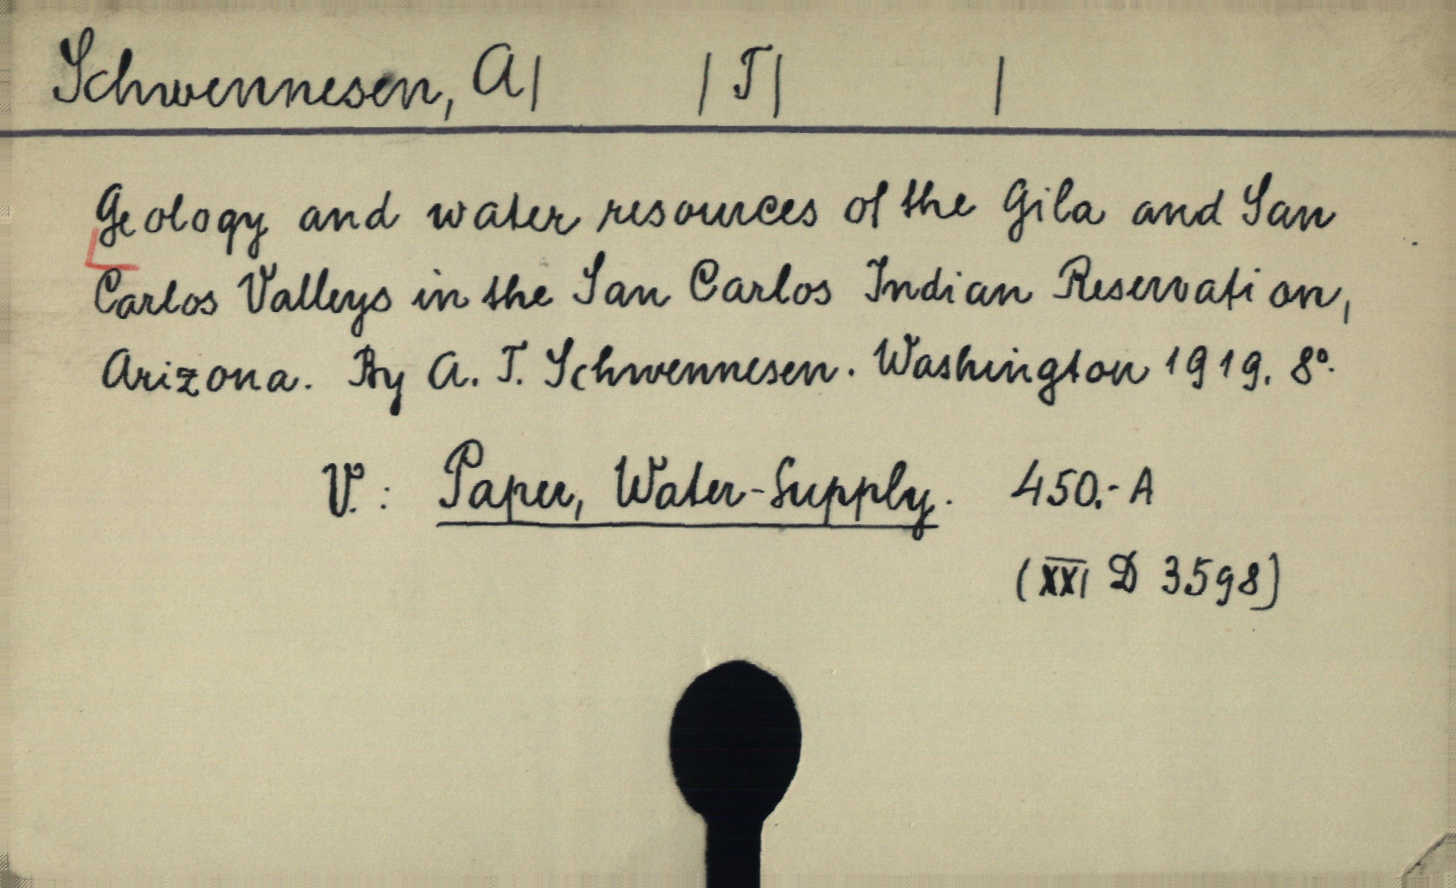 Schwennesen, A| | T| |
Geology and water resources of the Gila and San
Carlos Valleys in the San Carlos Indian Reservation,
Arizona. By A. T. Schwennesen. Washington 1919. 8°.
V.: Paper, Water-Supply. 450.-A
(XXI D 3598)